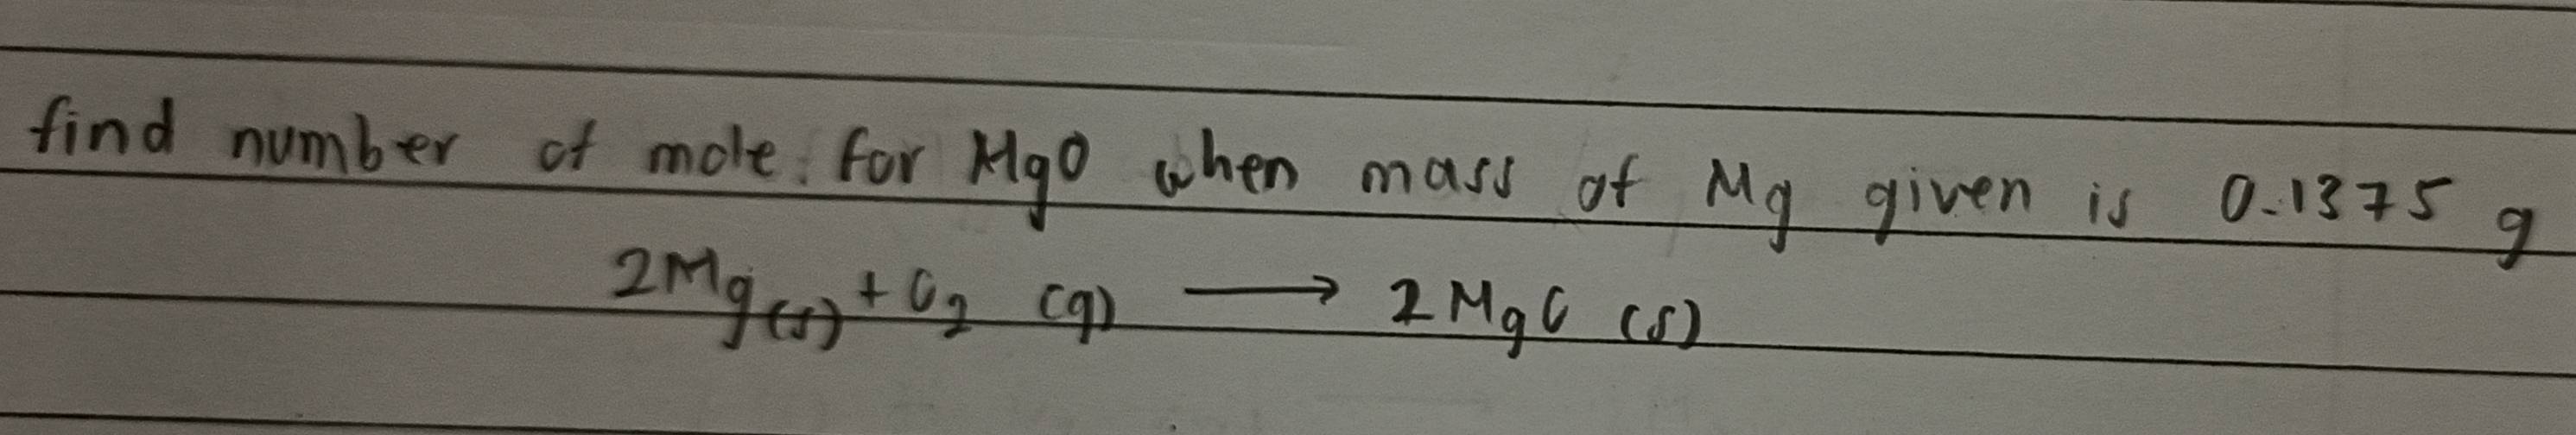 find number of mole for MgO when mass of Mg given is 0.1375 g
2Mg(s) + O2 (g) → 2MgO (s)